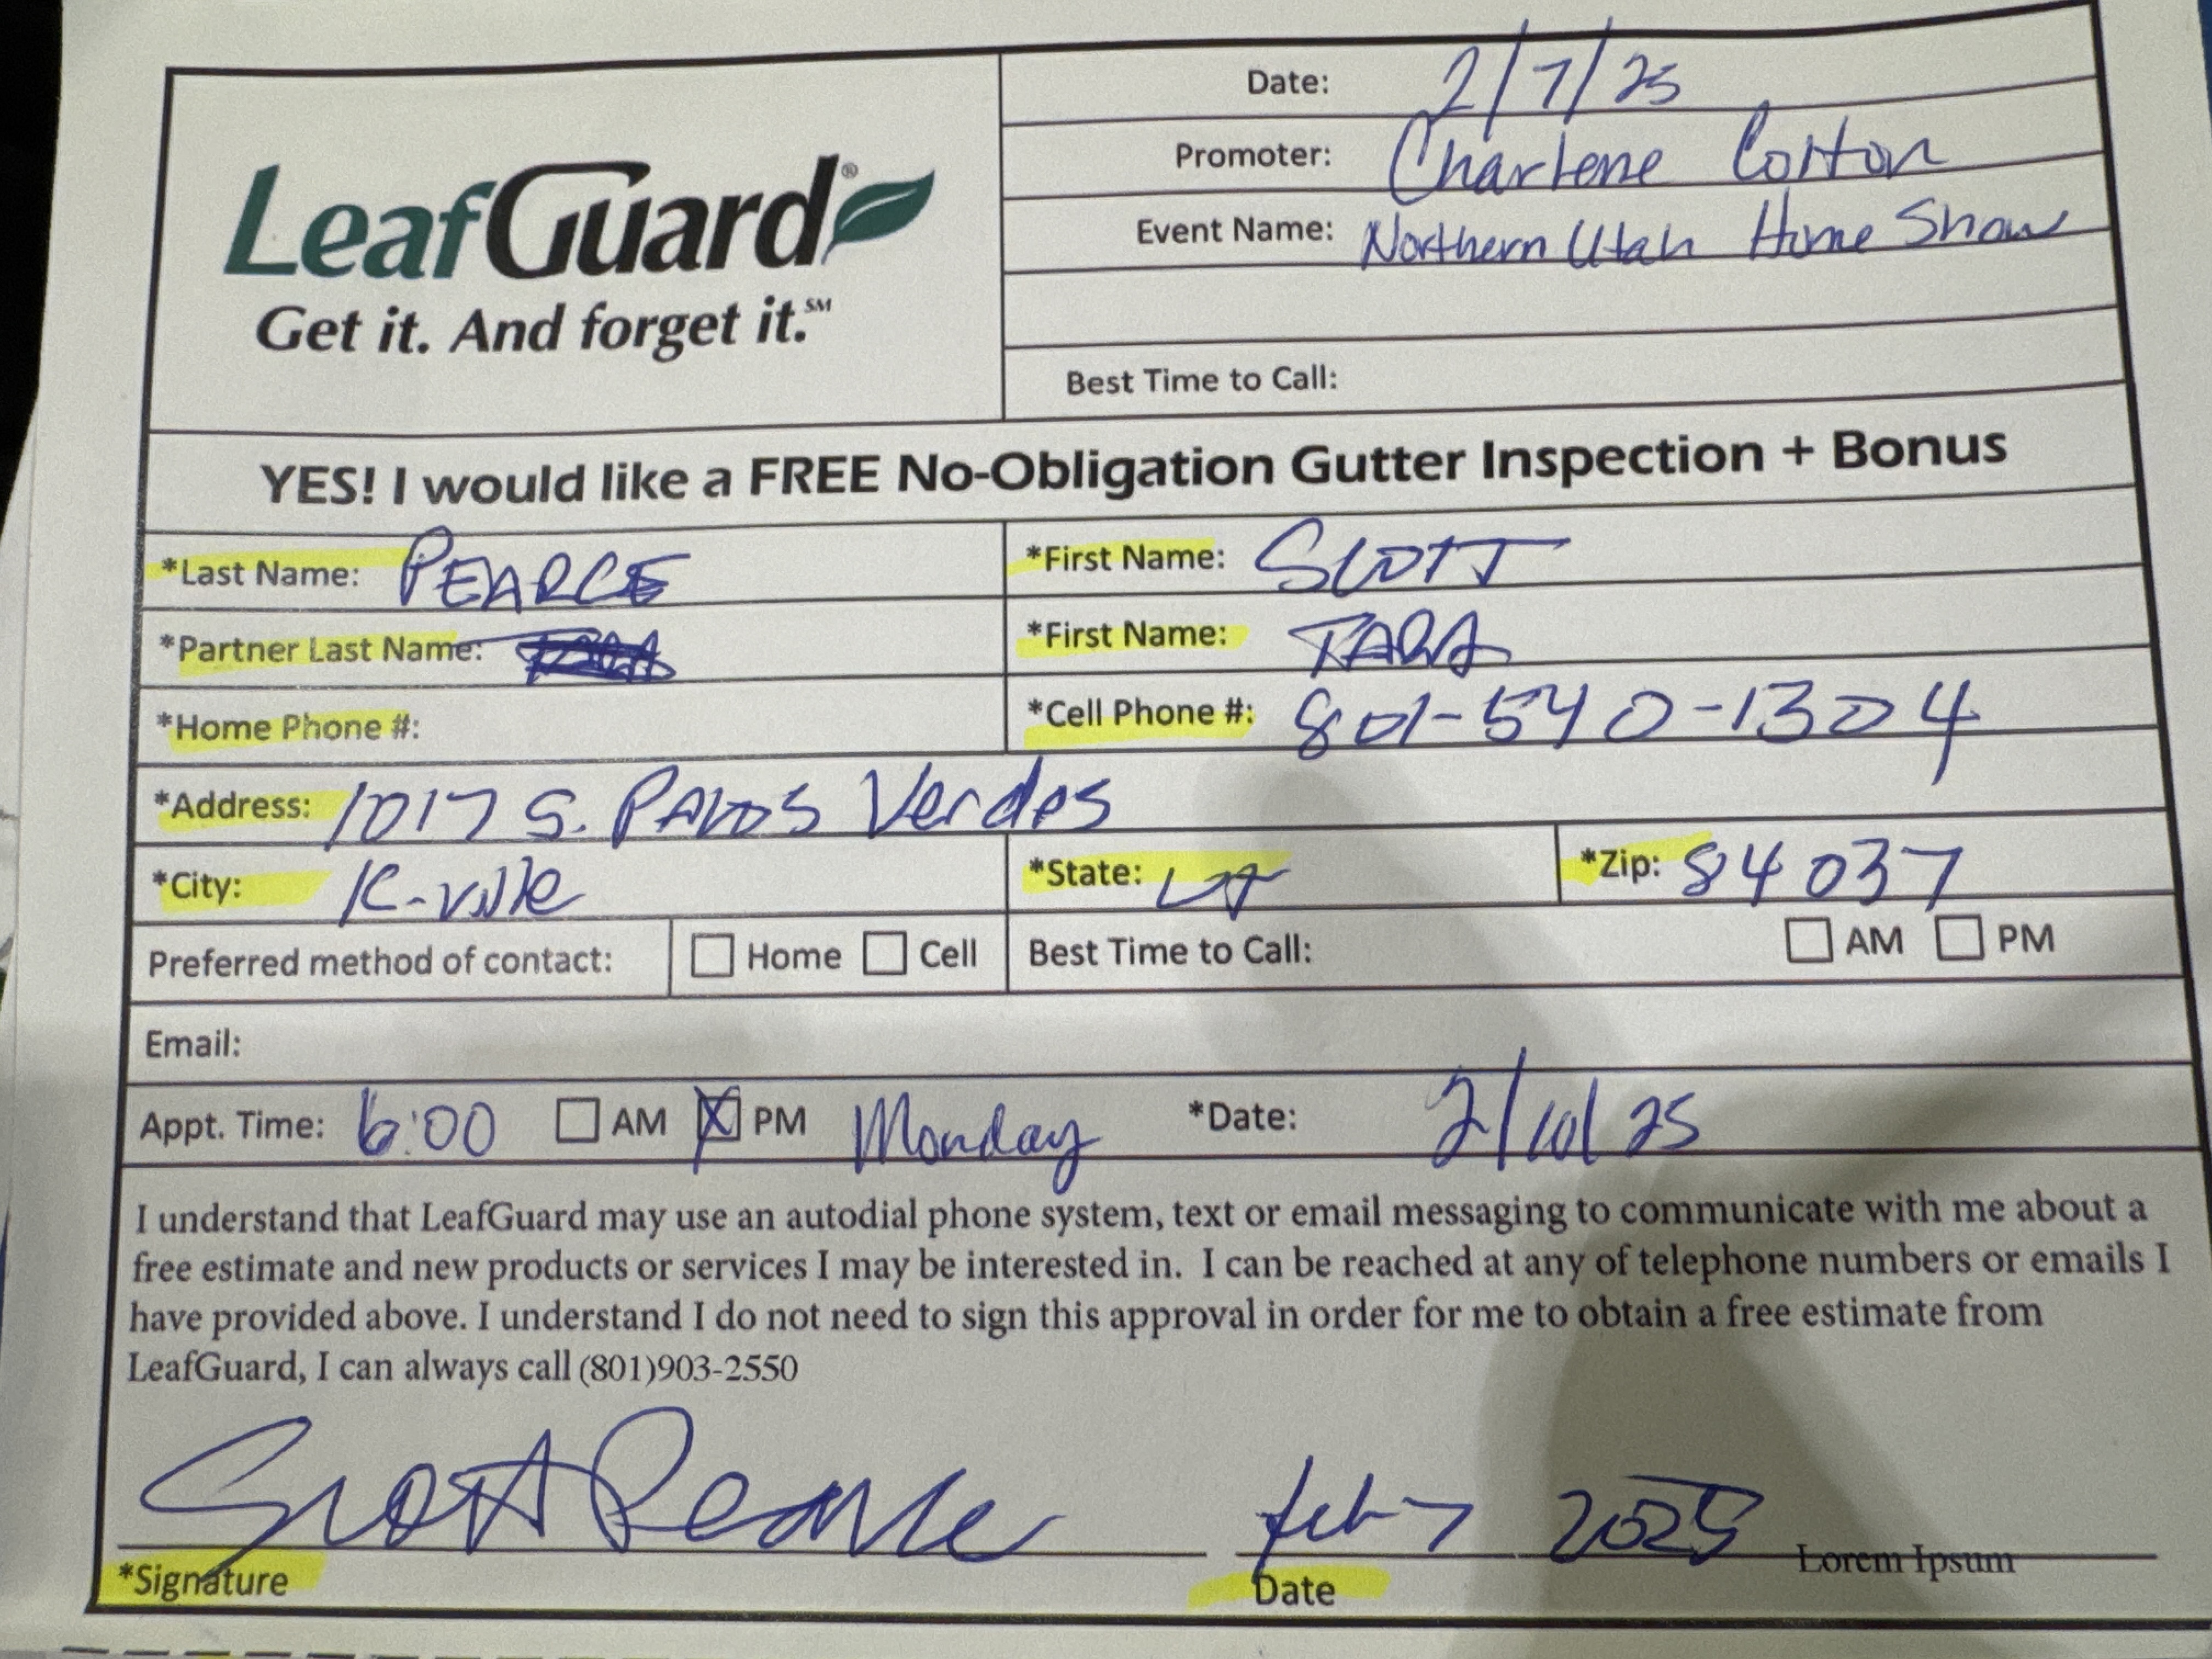 LeafGuard®
Get it. And forget it.℠
Date: 2/7/25
Promoter: Charlene Cotton
Event Name: Northern Utah Home Show
Best Time to Call:
YES! I would like a FREE No-Obligation Gutter Inspection + Bonus
*Last Name: PEARCE *First Name: SCOTT
*Partner Last Name: *First Name: TARA
*Home Phone #: *Cell Phone #: 801-540-1324
*Address: 1017 S. PALOS Verdes
*City: K-ville *State: UT *Zip: 84037
Preferred method of contact: Home Cell Best Time to Call: AM PM
Email:
Appt. Time: 6:00 AM X PM Monday *Date: 2/10/25
I understand that LeafGuard may use an autodial phone system, text or email messaging to communicate with me about a
free estimate and new products or services I may be interested in. I can be reached at any of telephone numbers or emails I
have provided above. I understand I do not need to sign this approval in order for me to obtain a free estimate from
LeafGuard, I can always call (801)903-2550
Scott Pearce Feb 7 2025 Lorem Ipsum
*Signature Date